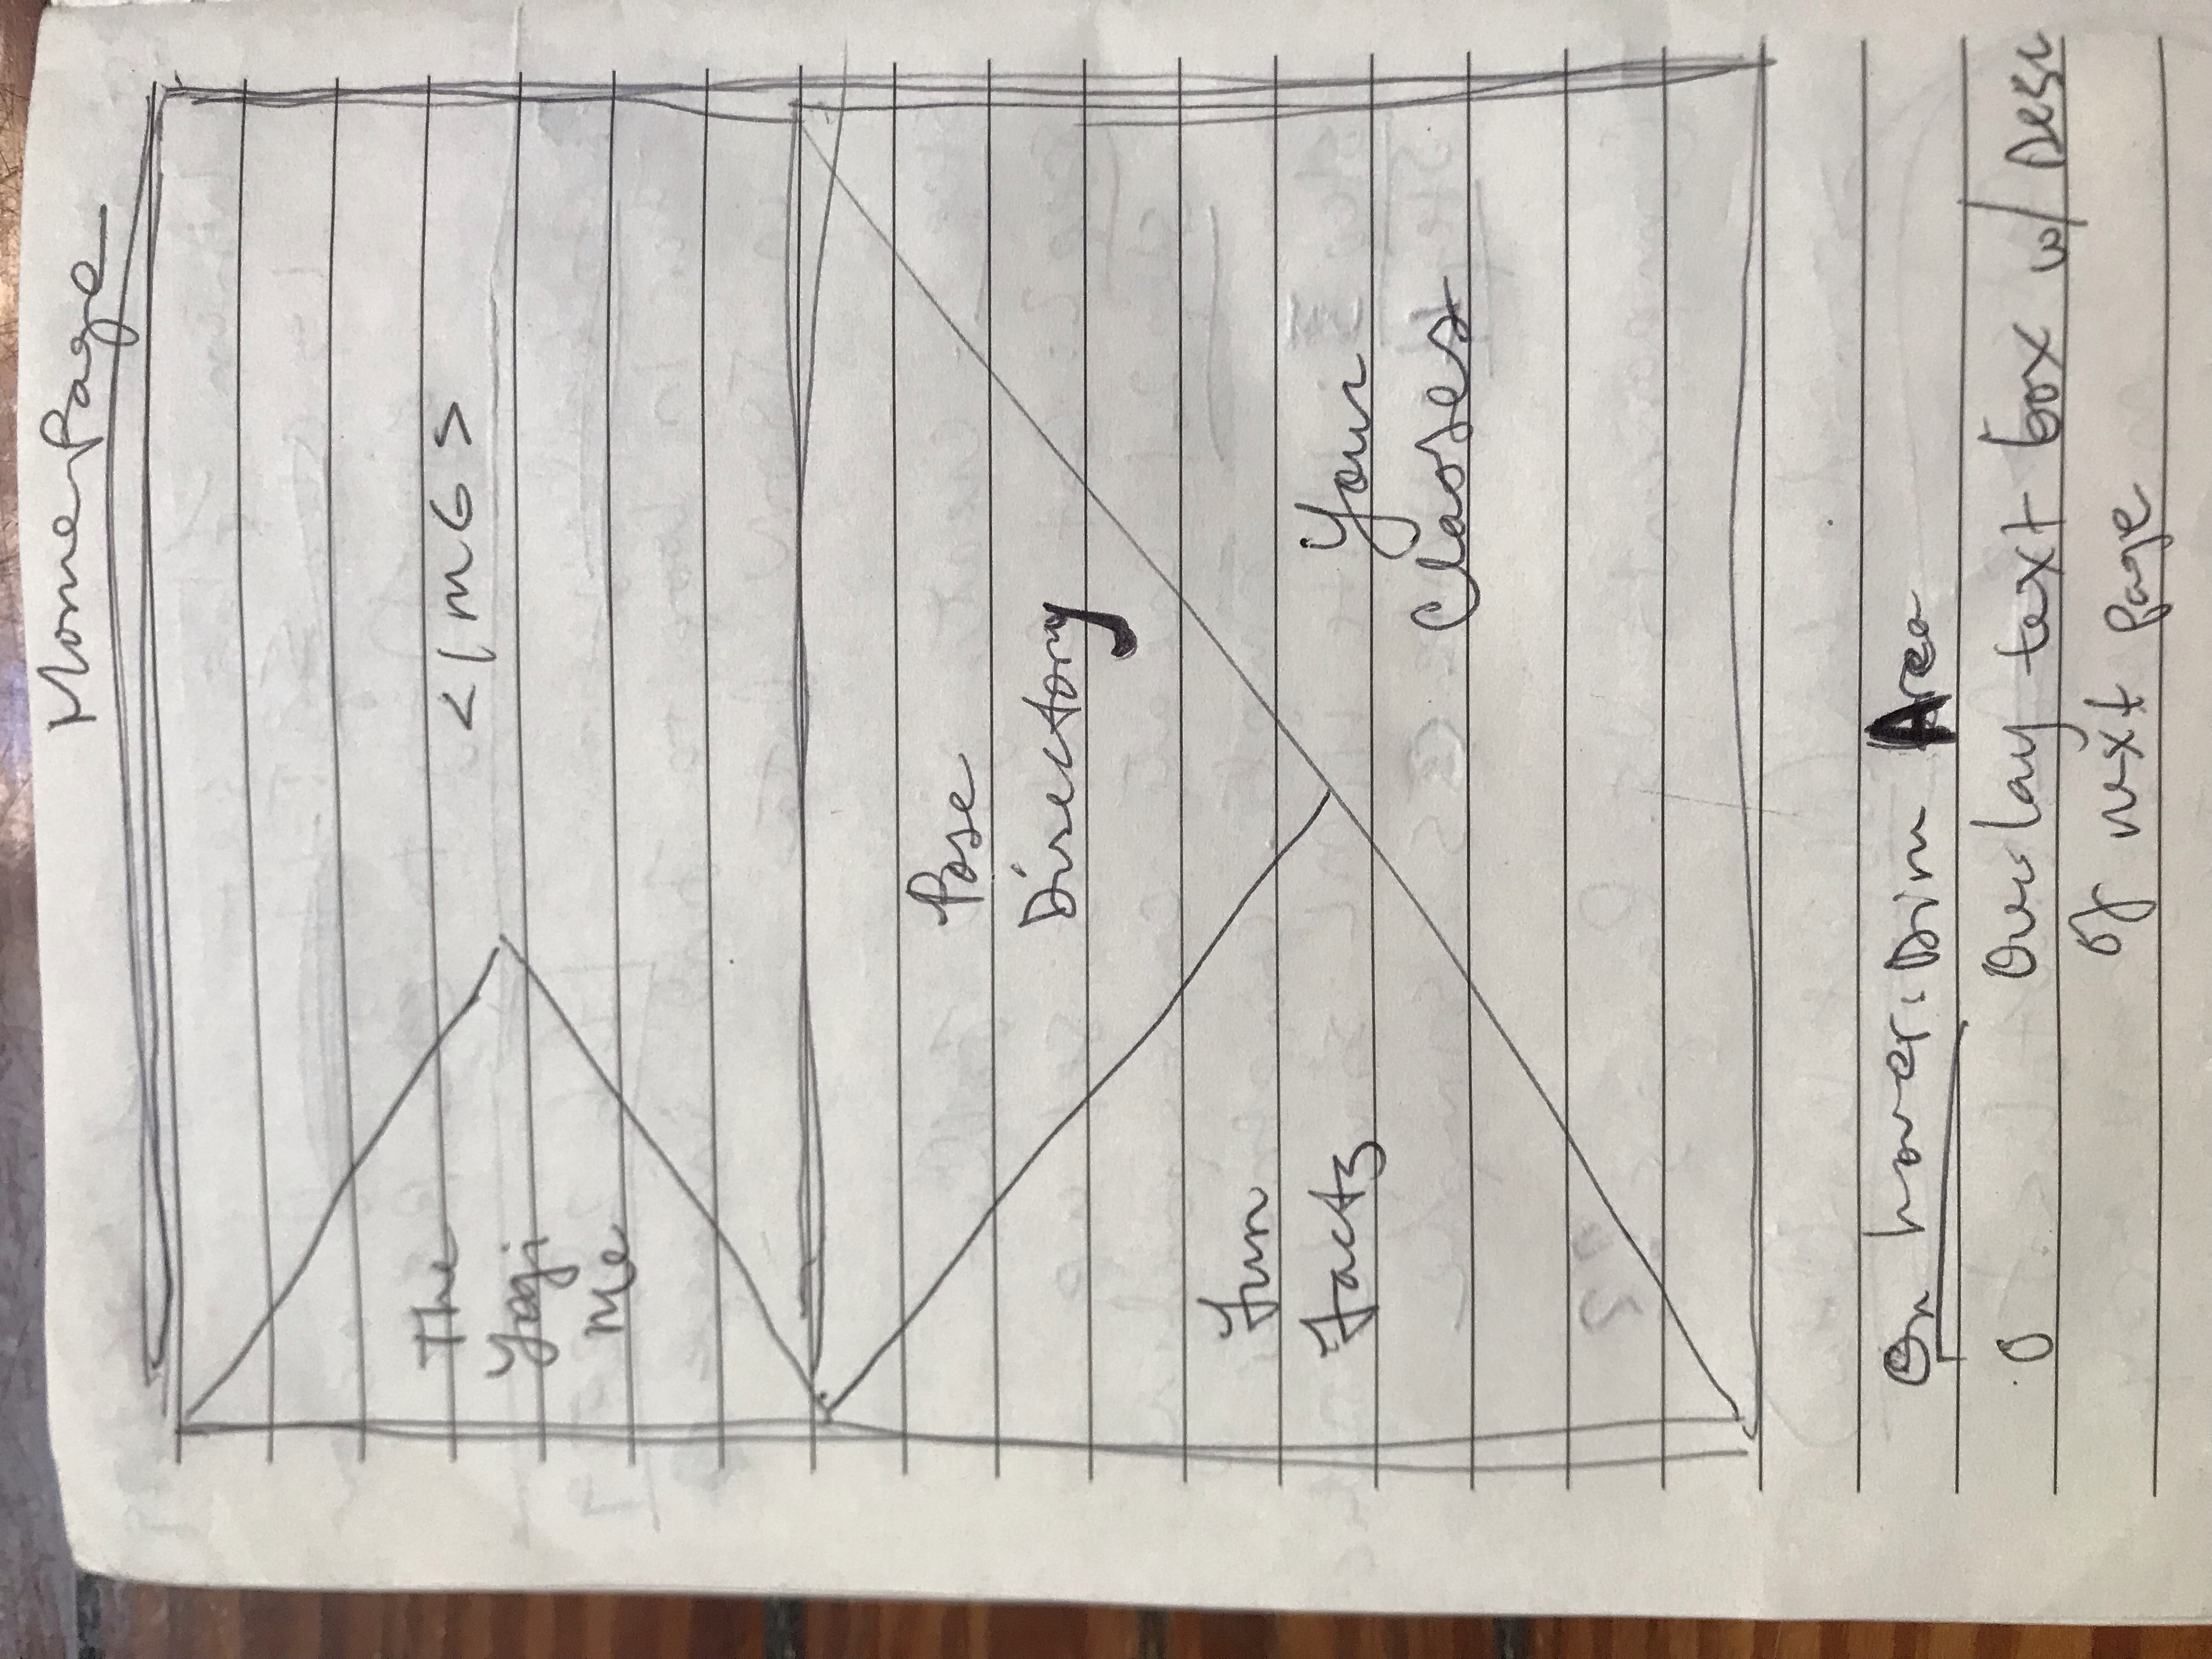 HomePage
The
Yogi
Me
<IMG>
Pose
Directory
Fun
Facts
Your
Classes
On hover: Dim Area
0 Overlay text box w/ Desc
of next page